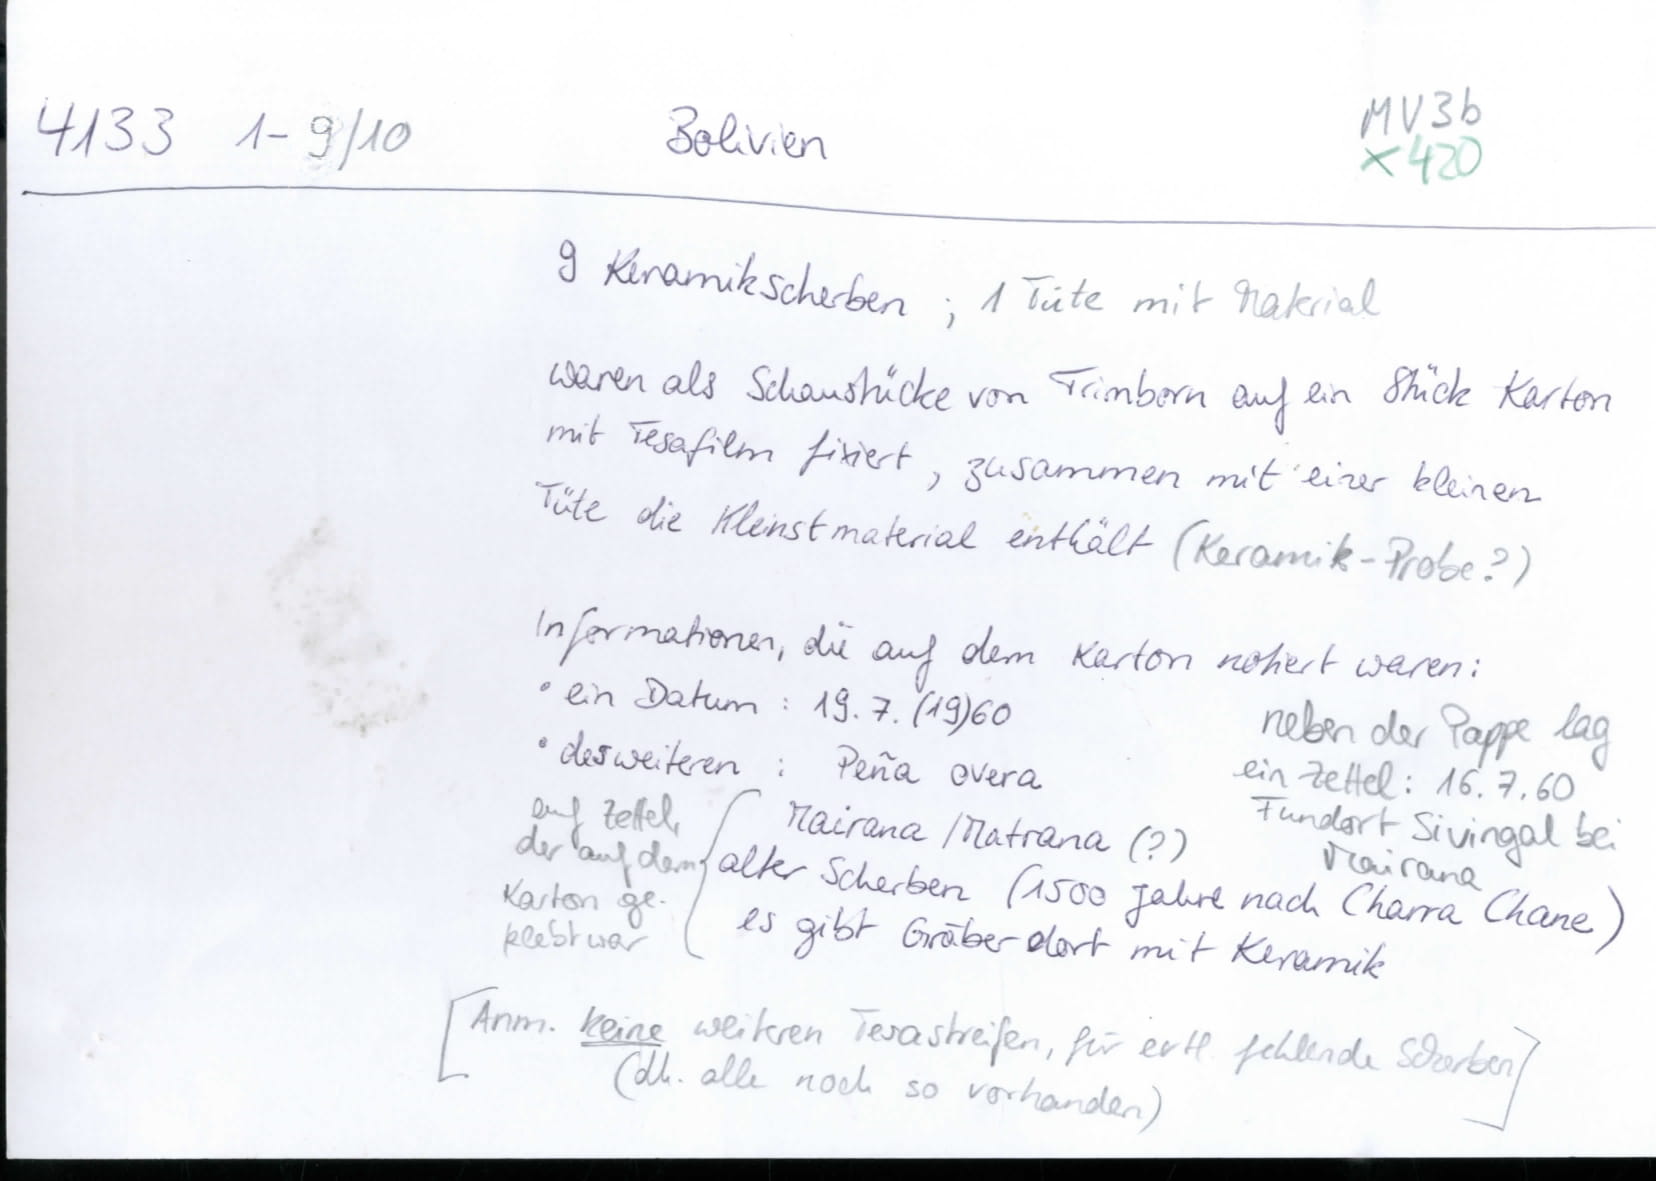 4133 1-9/10 Bolivien MV3b
x420
9 Keramikscherben ; 1 Tüte mit Material
waren als Schaustücke von Trimborn auf ein Stück Karton
mit Tesafilm fixiert, zusammen mit einer kleinen
Tüte die Kleinstmaterial enthält (Keramik-Probe?)
Informationen, die auf dem Karton notiert waren:
• ein Datum : 19. 7. (19)60
• desweiteren : Peña overa
neben der Pappe lag
ein Zettel: 16. 7. 60
Fundort Sivingal bei
Mairana
auf Zettel,
der auf dem
Karton ge-
klebt war
Mairana / Matrana (?)
alter Scherben (1500 Jahre nach Charra Chane)
es gibt Gräber dort mit Keramik
[Anm. keine weiteren Tesastreifen, für evtl. fehlende Scherben
(dh. alle noch so vorhanden)]